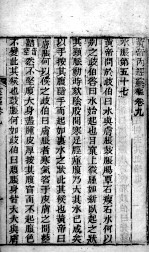 黃帝內經靈樞卷九
水脹第五十七
黃帝問於岐伯曰水與膚脹鼓脹腸覃石瘕石水何
以別之岐伯答曰水始起也目窠上微腫如新臥起之
狀其頸脈動時欬陰股間寒足脛腹乃大其水已成矣
以手按其腹隨手而起如裹水之狀此其候也黃帝曰
膚脹何以候之岐伯曰膚脹者寒氣客於皮膚之間
然不堅腹大身盡腫皮厚按其腹窅而不起腹色
不變此其候也鼓脹何如岐伯曰腹脹身皆大大與膚